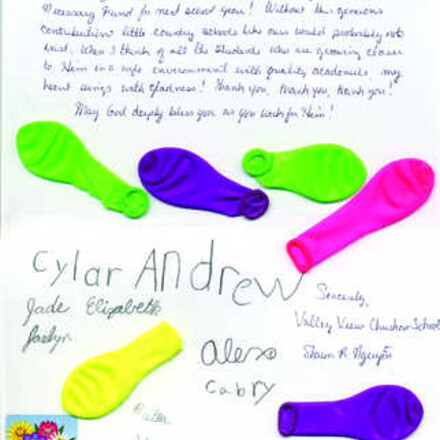 Necessary Fund for next school year! Without this generous
contribution little country schools like ours would probably not
exist. When I think of all the students who are growing closer
to Him in a safe environment with quality academics, my
heart sings with gladness! Thank you, thank you, thank you!
May God deeply bless you as you work for Him!
Cylar Andrew
Jade Elizabeth
Jaelyn
Alexo
Cabry
Sincerely,
Valley View Christian School
Shawn R Nguyen